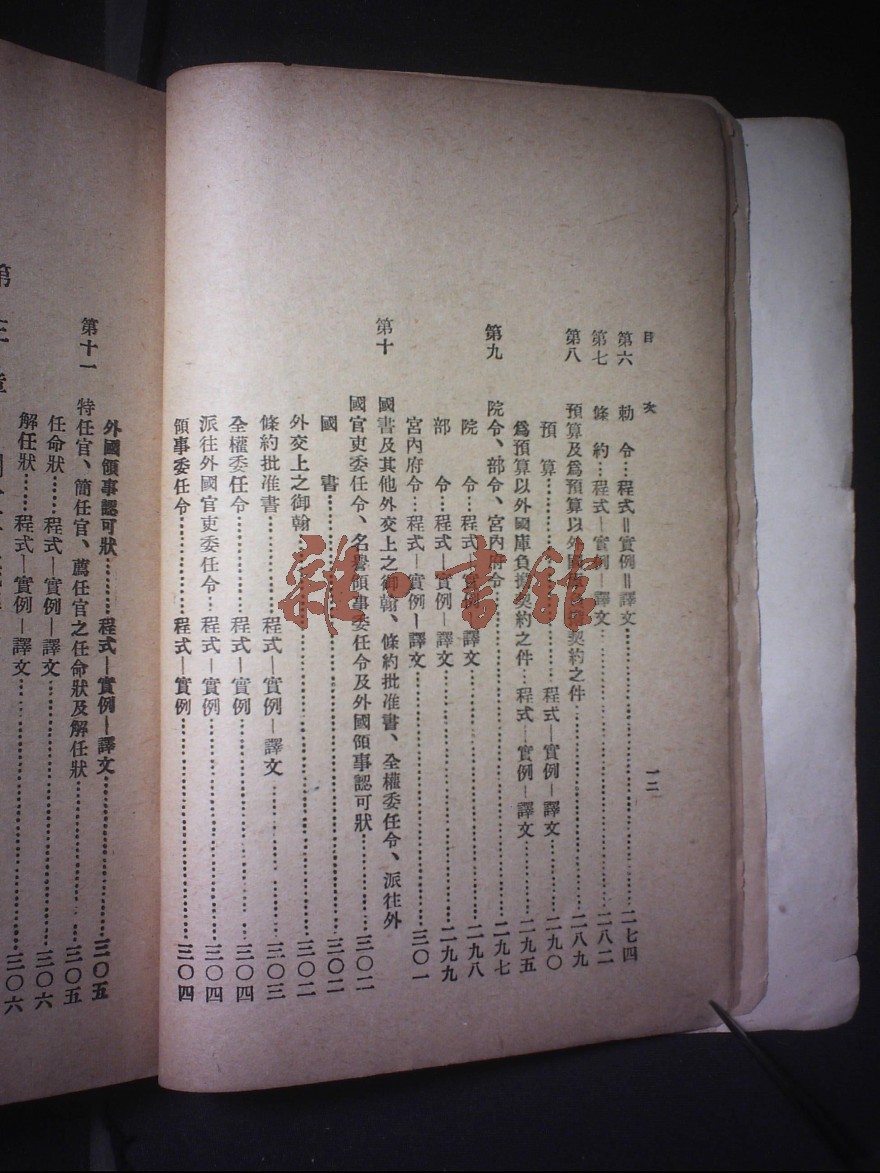 目次
一二
第六 勅令…程式＝實例＝譯文…二七四
第七 條約…程式—實例—譯文…二八二
第八 預算及爲預算以外國庫負擔契約之件…二八九
預算…程式—實例—譯文…二九〇
爲預算以外國庫負擔契約之件…程式—實例—譯文…二九五
第九 院令、部令、宮內府令…二九七
院令…程式—實例—譯文…二九八
部令…程式—實例—譯文…二九九
宮內府令…程式—實例—譯文…三〇一
第十 國書及其他外交上之御翰、條約批准書、全權委任令、派往外
國官吏委任令、名譽領事委任令及外國領事認可狀…三〇二
國書…三〇二
外交上之御翰…三〇二
條約批准書…程式—實例—譯文…三〇三
全權委任令…程式—實例…三〇四
派往外國官吏委任令…程式—實例…三〇四
領事委任令…程式—實例…三〇四
外國領事認可狀…程式—實例—譯文…三〇五
第十一 特任官、簡任官、薦任官之任命狀及解任狀…三〇五
任命狀…程式—實例—譯文…三〇六
解任狀…程式—實例—譯文…三〇六
第三章
雜·書館